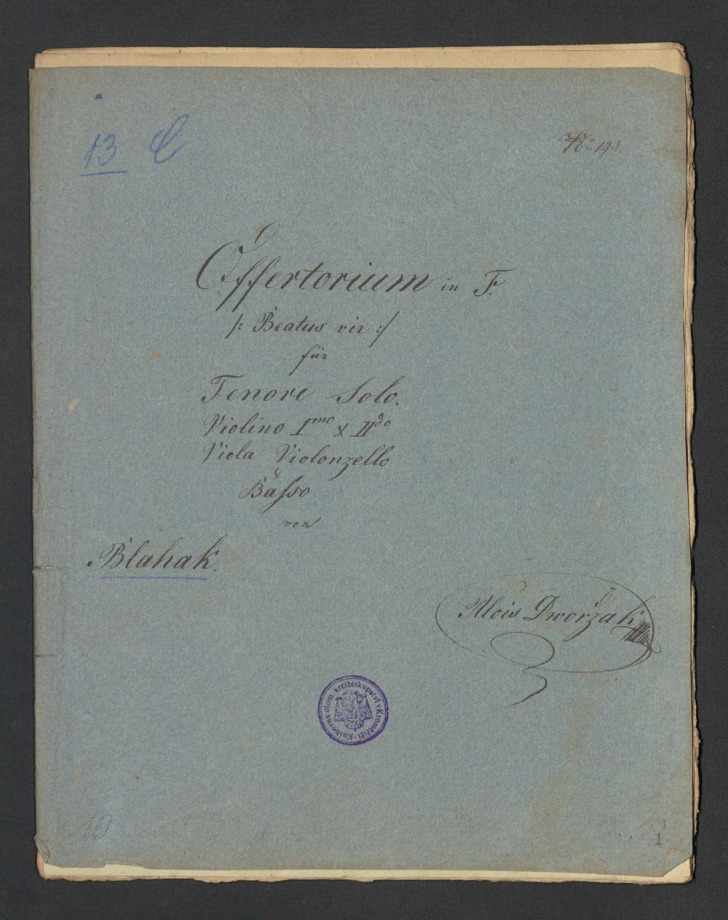 13 C
Offertorium in F.
/: Beatus vir :/
für
Tenore Solo.
Violino Imo & IIdo
Viola Violonzello
&
Basso
von
Blahak.
Alois Dworžak
Knihovna olom. arcibiskupství v Kroměříži
1